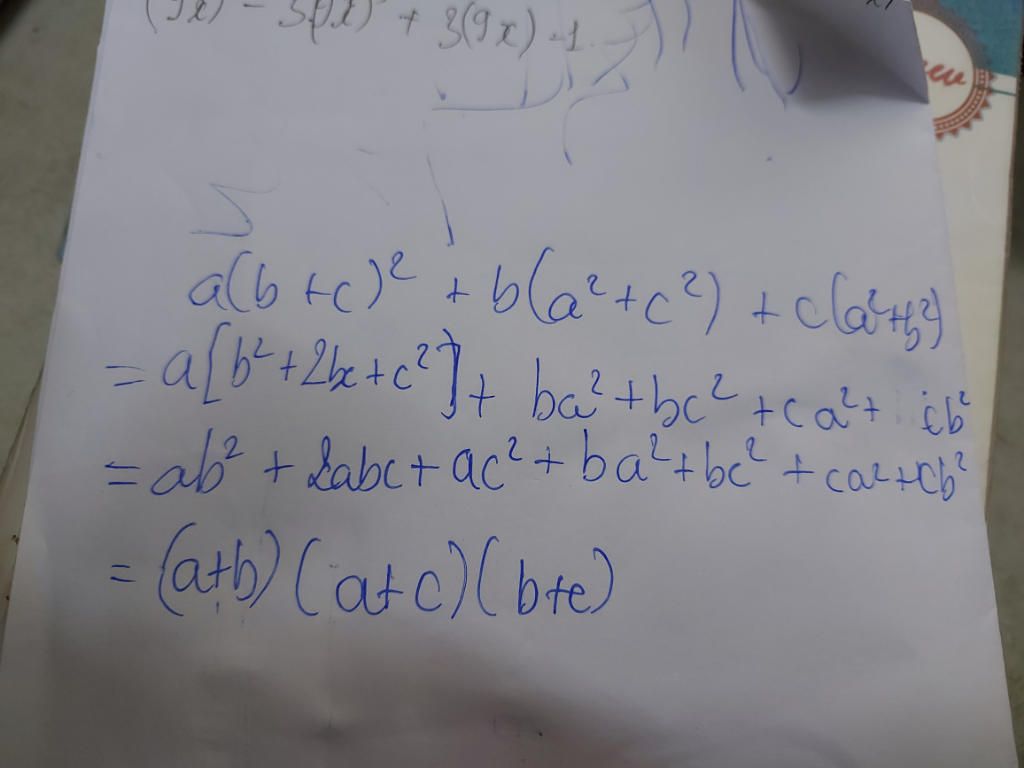 (9x) - 3(9x)² + 3(9x) - 1
a(b+c)² + b(a²+c²) + c(a²+b²)
= a[b²+2bc+c²] + ba²+bc²+ca²+cb²
= ab² + 2abc + ac² + ba² + bc² + ca² + cb²
= (a+b)(a+c)(b+c)